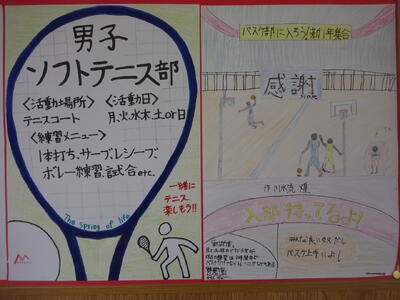 男子
ソフトテニス部
<活動場所>
テニスコート
<活動日>
月、火、水、木、土or日
<練習メニュー>
1本打ち、サーブ、レシーブ、
ボレー練習、試合etc.
The spring of life
一緒に
テニス
楽しもう!!
バスケ部に入ろう!新1年集合
感謝
入部待ってるよ!
みんな良いヤツだし
バスケ上手いよ!